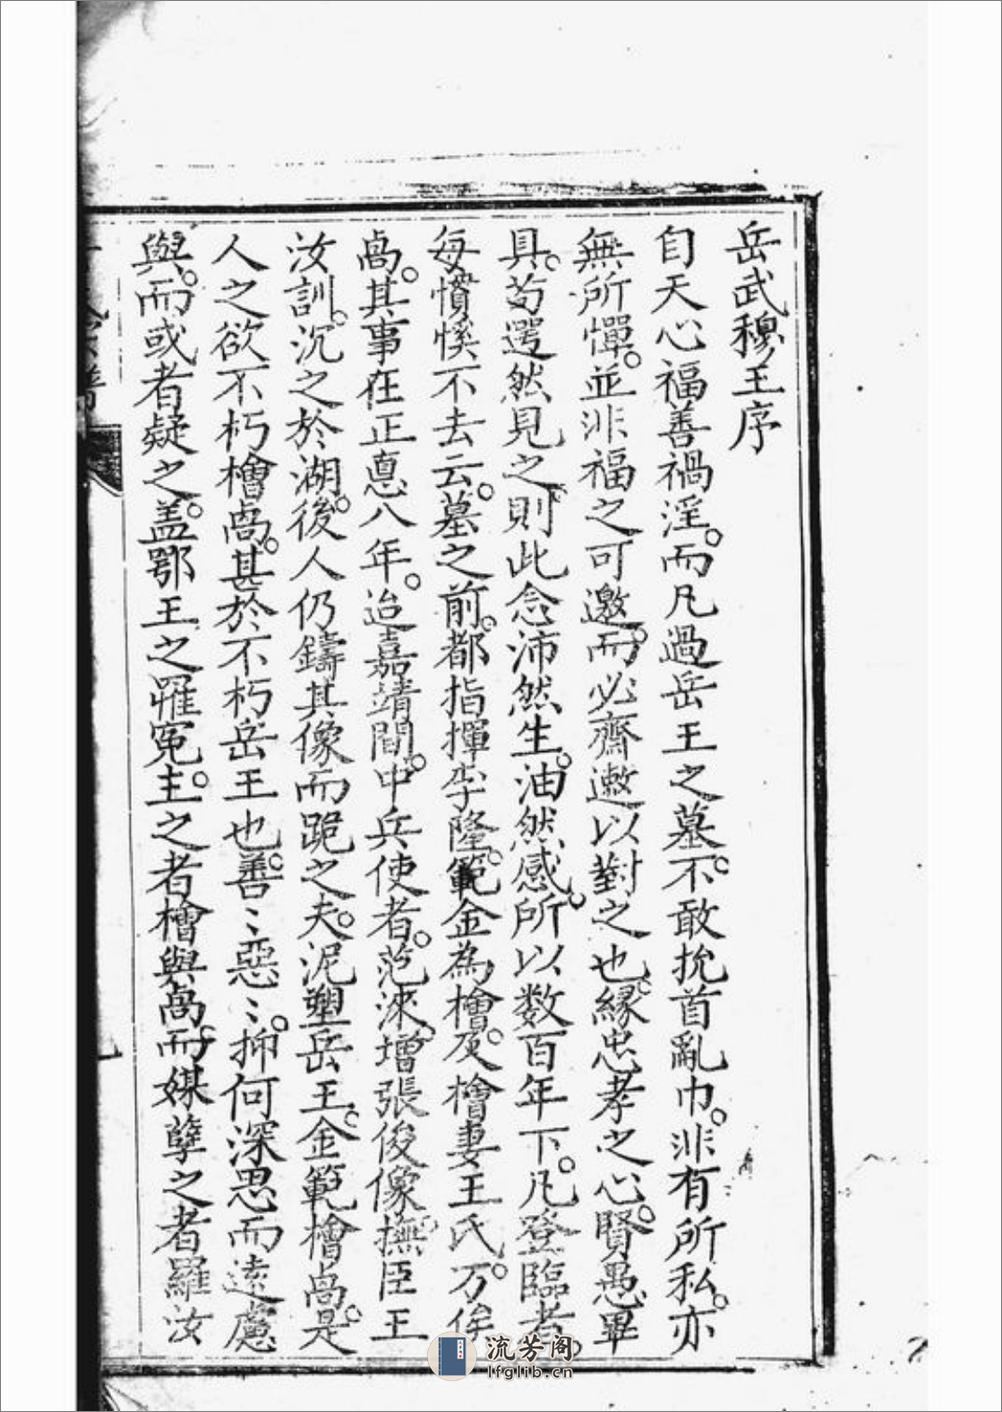 岳武穆王序
自天心福善禍淫。而凡過岳王之墓。不敢挩首亂巾。非有所私。亦
無所憚。並非福之可邀。而必齋遬以對之也。緣忠孝之心。賢愚畢
具。苟遌然見之。則此念沛然生。油然感。所以数百年下。凡登臨者。
每憤惋不去云。墓之前。都指揮李隆。範金為檜。及檜妻王氏。万俟
卨。其事在正悳八年。迨嘉靖間。中兵使者。范淶。增張俊像。撫臣王
汝訓。沉之於湖。後人仍鑄其像而跪之。夫泥塑岳王。金範檜卨。是
人之欲不朽檜卨。甚於不朽岳王也。善〻惡〻。抑何深思而遠慮
與。而或者疑之。盖鄂王之罹冤。主之者檜與卨。而媒孽之者羅汝
流芳阁
lfglib.cn